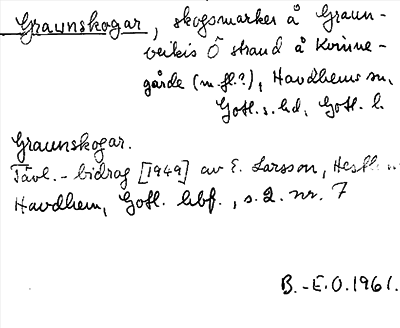 Graunskogar, skogsmarker å Graun-
veikis Ö strand å Kvinne-
gårde (m. fl.?), Havdhems sn,
Gotl. s. hd, Gotl. l.
Graunskogar.
Tävl.-bidrag [1949] av E. Larsson,
Havdhem, Gotl. hbf., s. 2. nr. 7
B.-E.O. 1961.